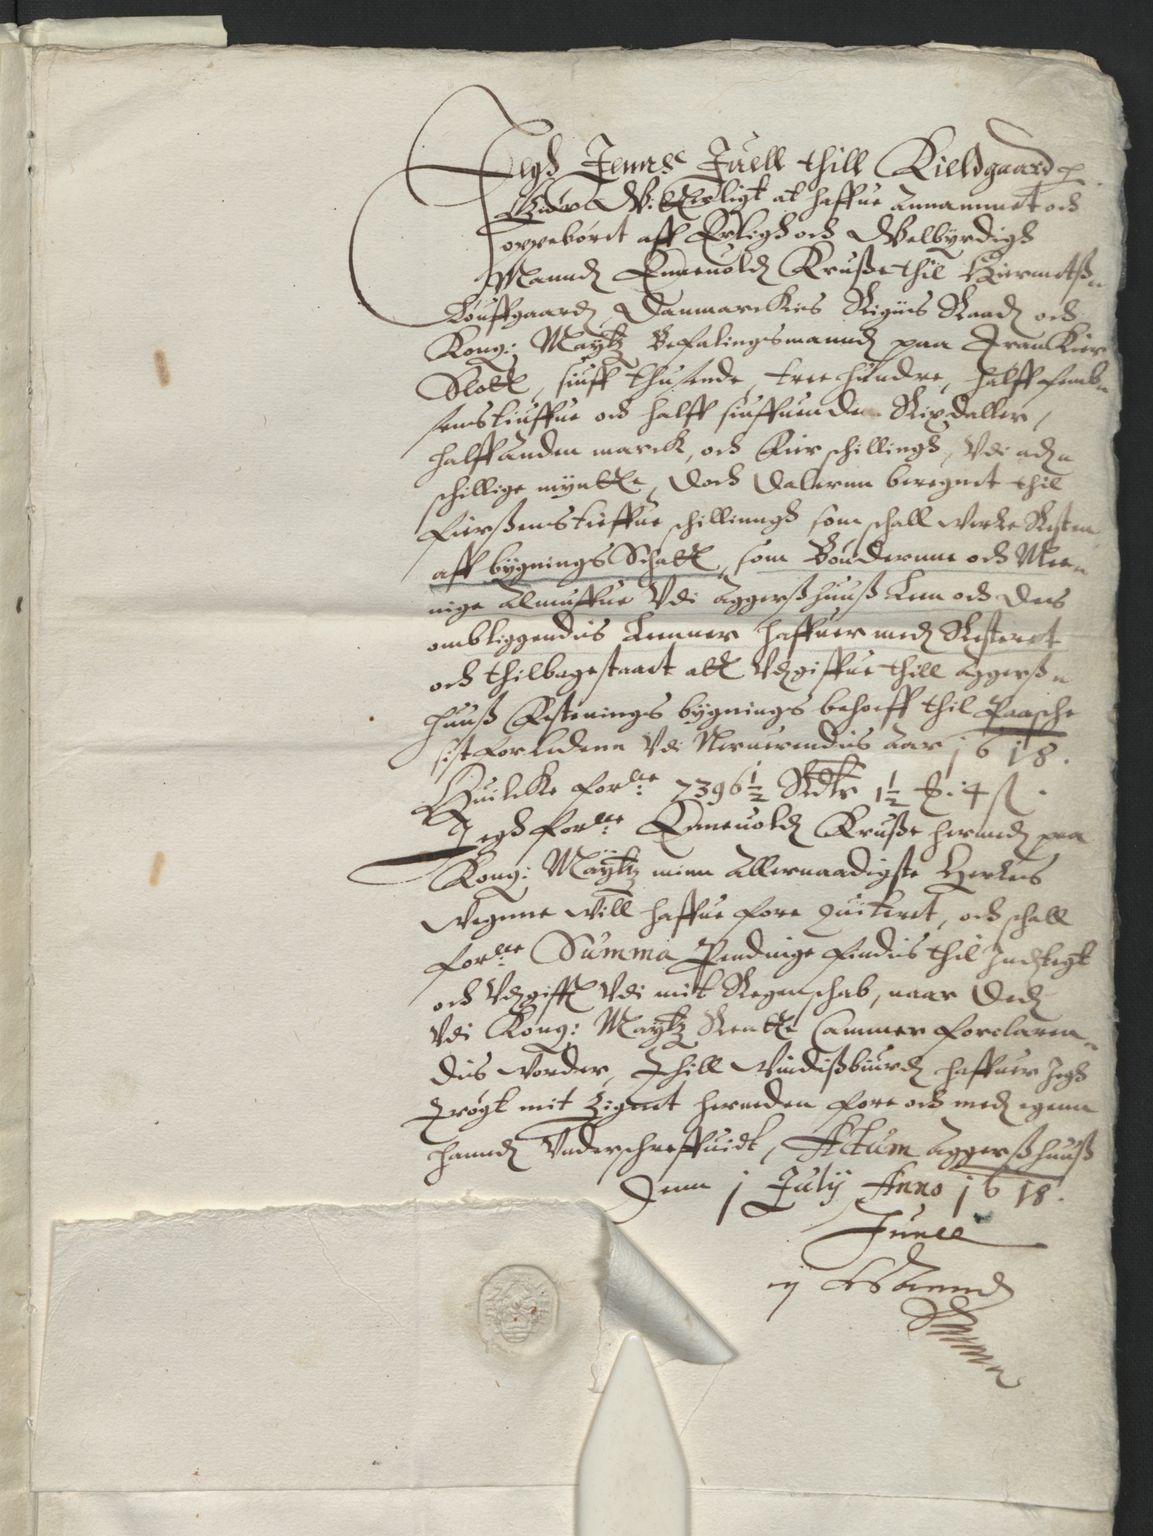 Jegh Jenns Juell thill Kieldgaard p
Giør Witterligt at haffue Annammet och
oppeboret aff Erligh och Welbyrdigh
Mannd Enneuold Kruße thil Hiermitß-
louffgaard, Danmarckis Rigiis Raad och
Kong: Maytz Befalingsmannd paa
Slott, siuff thusende, tree hundre, halff femb-
semstiuffue och halff siuffuende Rixdaller,
halffanden marck, och fiir schillingh, Vdi adz-
schillige myntte, doch dalerenn beregnet thil
fierßemstiuffue schillinngh som schall were Resten
aff bygnings Schatt, som Bønderenne och Mee-
nige almuffue Vdi Aggerßhuuß Leen och dets
ombliggendiis Leenner haffuer med Resteret
och thilbagestaaet att Vdgiffue thill Aggerß-
huuß Festnings bygnings behoeff thil Paasche
sist forledenn Vdi Neruerendiis Aar 1618.
Huilcke forne: 7396½ Rdlr 1½ mk: 4 ß.
Jegh forne Enneuold Kruße hermed paa
Kong: Maytz minn Allernaadigste Herris
Wegnne Will haffue fore quiteret, och schall
forne: Summa Pendinge findis thil Indtegt
och Vdgifft Vdi mit Regenschab, naar ded
Vdi Kong: Maytz Rentte Cammer forclaren-
dis worder, Thill Vindißbiurd haffuer Jegh
trøgt mit Zignet herneden fore och med egenn
hannd Vnderschreffuidt, Actum Aggerßhuuß
denn 1 Julij Anno 1618.
Juell
Eghennd